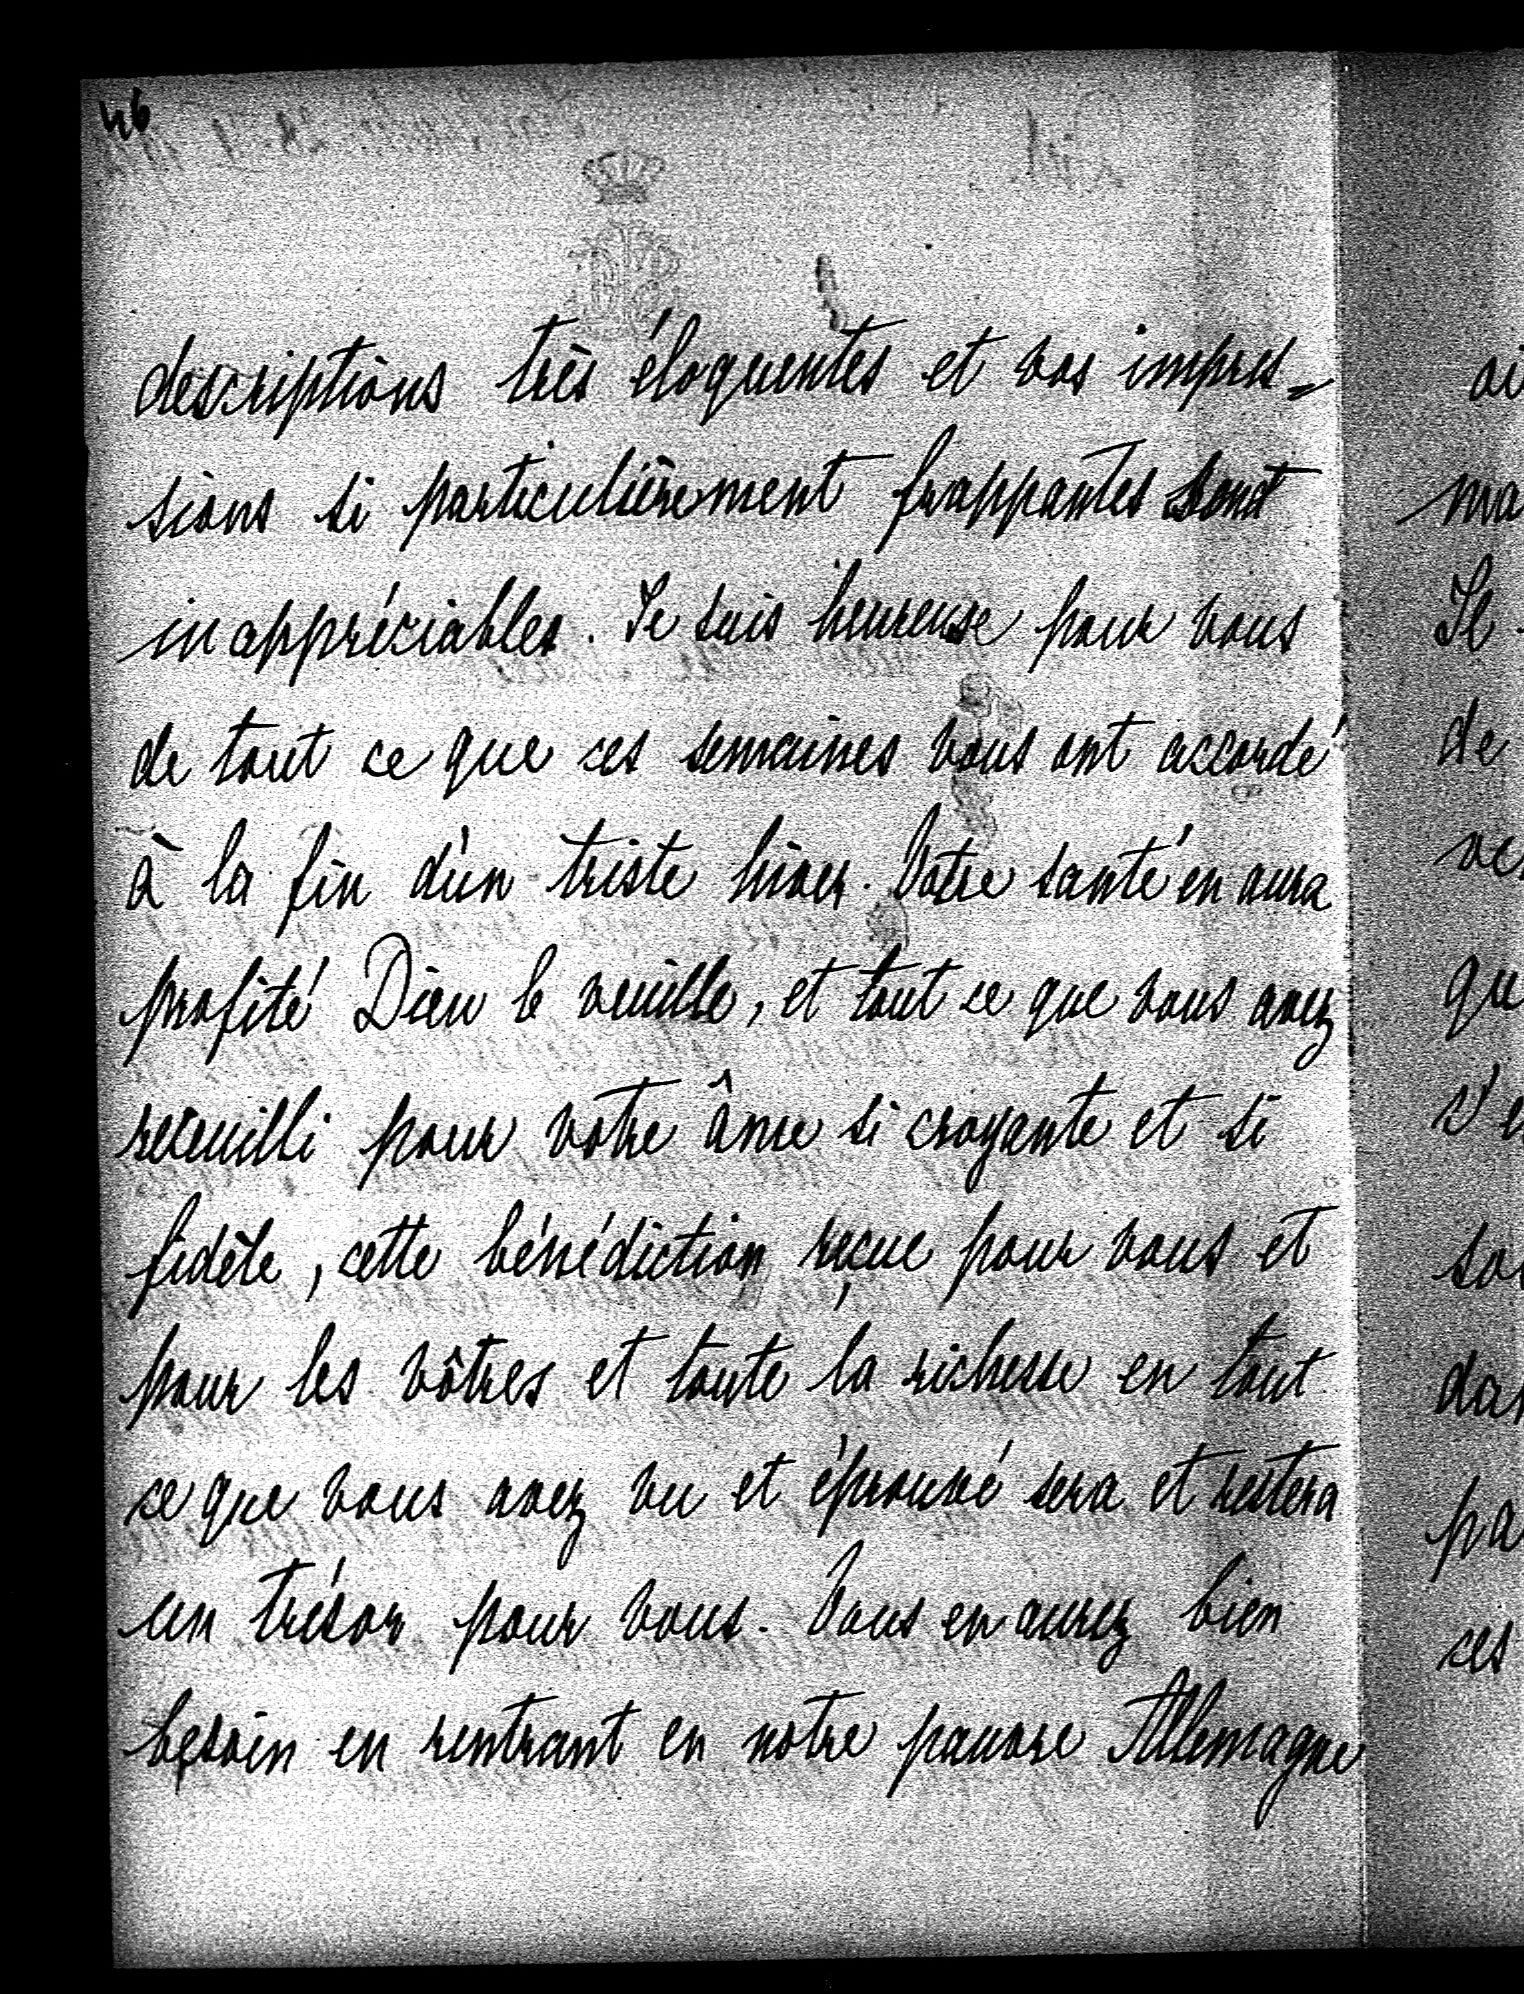 46
descriptions très éloquentes et vos impres=
sions si particulièrement frappantes sont
inappréciables. Je suis heureuse pour vous
de tout ce que ces semaines vous ont accordé
à la fin d'un triste hiver. Votre santé en aura
profité Dieu le veuille, et tout ce que vous avez
receuilli pour votre âme si croyante et si
fidèle, cette bénédiction reçue pour vous et
pour les vôtres et toute la richesse en tout
ce que vous avez vu et éprouvé sera et restera
un trésor pour vous. Vous en aurez bien
besoin en rentrant en notre pauvre Allemagne